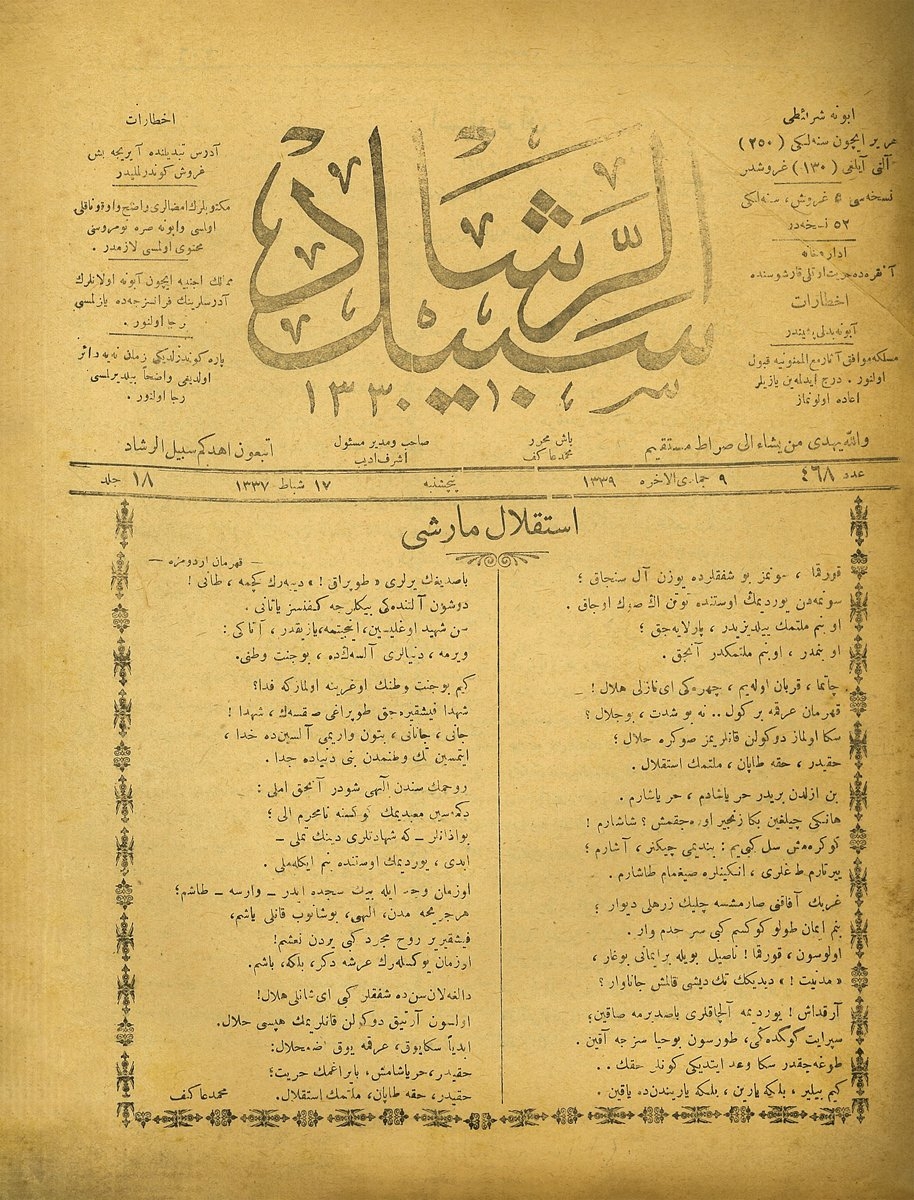 ابونه شرائطی
هر یر ایچون سنه‌لكی ( ٢٥٠ )
آلتی آیلغی ( ١٣٠ ) غروشدر
نسخه‌سی ٥ غروش، سنه‌لكی
٥٢ نسخه‌در
اداره‌خانه
آنقره‌ده حریت اوتلی قارشوسنده
اخطارات
آبونه بدلی پشیندر
مسلكه موافق آثار مع الممنونیه قبول
اولنور . درج ایدلمه‌ین یازیلر
اعاده اولونماز
اخطارات
آدرس تبدیلنده آیریجه بش
غروش كوندرلملیدر
مكتوبلرك امضالری واضح واوقوناقلی
اولمسی وابونه صره نومروسی
محتوی اولمسی لازمدر .
ممالك اجنبیه ایچون آبونه اولانلرك
آدرسلرینك فرانسزجه‌ده یازلمسی
رجا اولنور .
پاره كوندرلدیكی زمان نه‌یه دائر
اولدیغی واضحاً بیلدیرلمسی
رجا اولنور .
سبیل الرّشاد
١٣٣٠
والله یهدی من یشاء الی صراط مستقیم
باش محرر
محمد عاكف
صاحب ومدیر مسئول
اشرف ادیب
اتبعون اهدكم سبیل الرشاد
عدد ٤٦٨
٩ جمادی الاخره ١٣٣٩
پنجشنبه
١٧ شباط ١٣٣٧
جلد ١٨
استقلال مارشی
— قهرمان اردومزه —
قورقما ، سونمز بو شفقلرده یوزن آل سنجاق ؛
سونمه‌دن یوردیمك اوستنده توتن اڭ صوڭ اوجاق .
او بنم ملتمك ییلدیزیدر ، پارلایه‌جق ؛
او بنمدر ، او بنم ملتمكدر آنجق .
چاتما ، قربان اوله‌یم ، چهره‌ڭی ای نازلی هلال !
قهرمان عرقمه بر كول .. نه بو شدت ، بو جلال ؟
سڭا اولماز دوكولن قانلریمز صوكره حلال ؛
حقیدر ، حقه طاپان ، ملتمك استقلال .
بن ازلدن بریدر حر یاشادم ، حر یاشارم .
هانكی چیلغین بڭا زنجیر اوره‌جقمش ؟ شاشارم !
كوكره‌مش سل كبی‌یم : بندیمی چیكنر ، آشارم ؛
ییرتارم طاغلری ، انكینلره صیغمام طاشارم .
غربك آفاقنی صارمشسه چلیك زرهلی دیوار ؛
بنم ایمان طولو كوكسم كبی سر حدم وار .
اولوسون ، قورقما ! ناصیل بویله بر ایمانی بوغار ،
« مدنیت ! » دیدیكك تك دیشی قالمش جاناوار ؟
آرقداش ! یوردیمه آلچاقلری باصدیرمه صاقین ؛
سپر ایت كوكده‌ڭی ، طورسون بو حیاسزجه آقین .
طوغه‌جقدر سڭا وعد ایتدیكی كونلر حقك . .
كیم بیلیر ، بلكه یارین ، بلكه یاریندن‌ده یاقین .
باصدیغك یرلری « طوپراق ! » دییه‌رك كچمه ، طانی !
دوشون آلتنده‌كی بیكلرجه كفنسز یاتانی .
سن شهید اوغلیسین، اینجیتمه، یازیقدر ، آتاڭی :
ویرمه ، دنیالری آلسه‌ڭ‌ده ، بو جنت وطنی.
كیم بو جنت وطنك اوغرینه اولماز كه فدا؟
شهدا فیشقیره‌جق طوپراغی صقسه‌ڭ ، شهدا !
جانی ، جانانی ، بتون واریمی آلسین‌ده خدا ،
ایتمسین تك وطنمدن بنی دنیاده جدا .
روحمك سندن الٓهی شودر آنجق املی :
دكمه‌سین معبدیمك كوكسنه نامحرم الی ؛
بو اذانلر — كه شهادتلری دینك تملی —
ابدی ، یوردیمك اوستنده بنم ایكله‌ملی
او زمان وجد ایله بیڭ سجده ایدر — وارسه — طاشم؛
هر جریحه‌مدن، الٓهی، بوشانوب قانلی یاشم،
فیشقیریر روح مجرد كبی یردن نعشم!
او زمان یوكسله‌رك عرشه دكر، بلكه، باشم.
دالغه‌لان سن‌ده شفقلر كبی ای شانلی هلال!
اولسون آرتیق دوكولن قانلریمك هپسی حلال.
ابدیاً سڭا یوق، عرقمه یوق اضمحلال:
حقیدر، حر یاشامش، بایراغمك حریت؛
حقیدر، حقه طاپان، ملتمك استقلال.
محمد عاكف